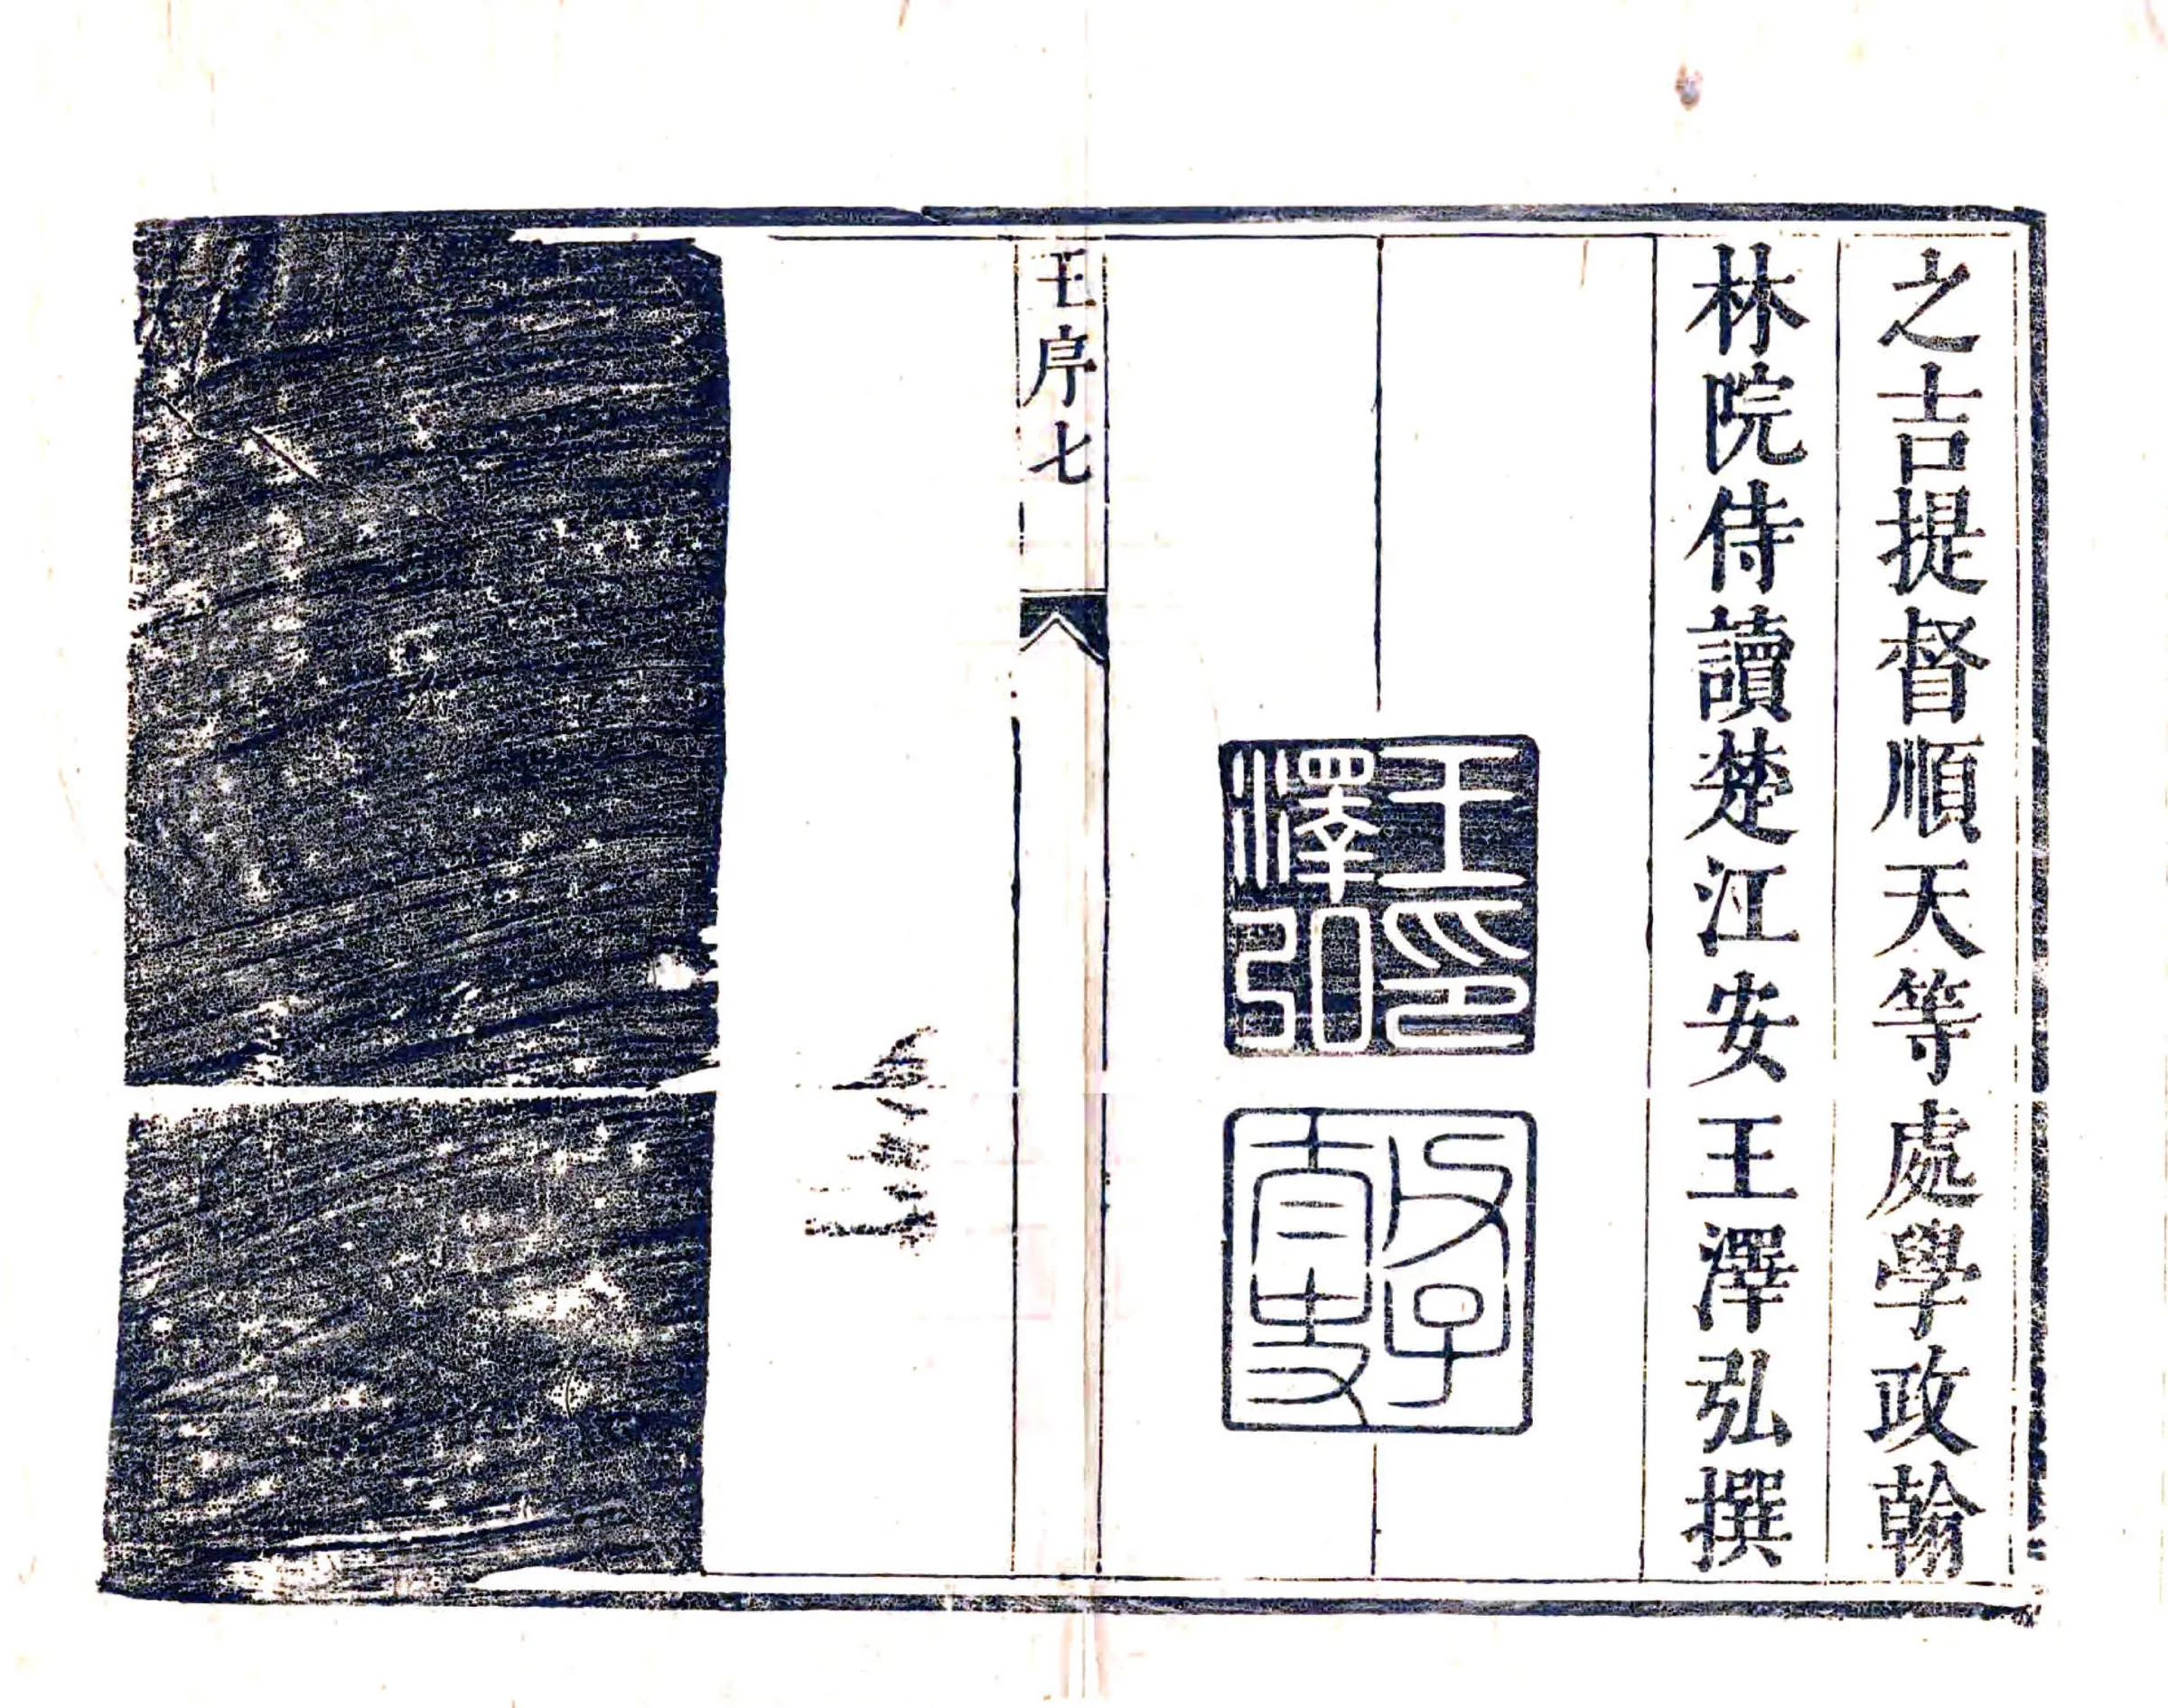 之吉提督順天等處學政翰
林院侍讀楚江安王澤弘撰
王印
澤弘
王序七